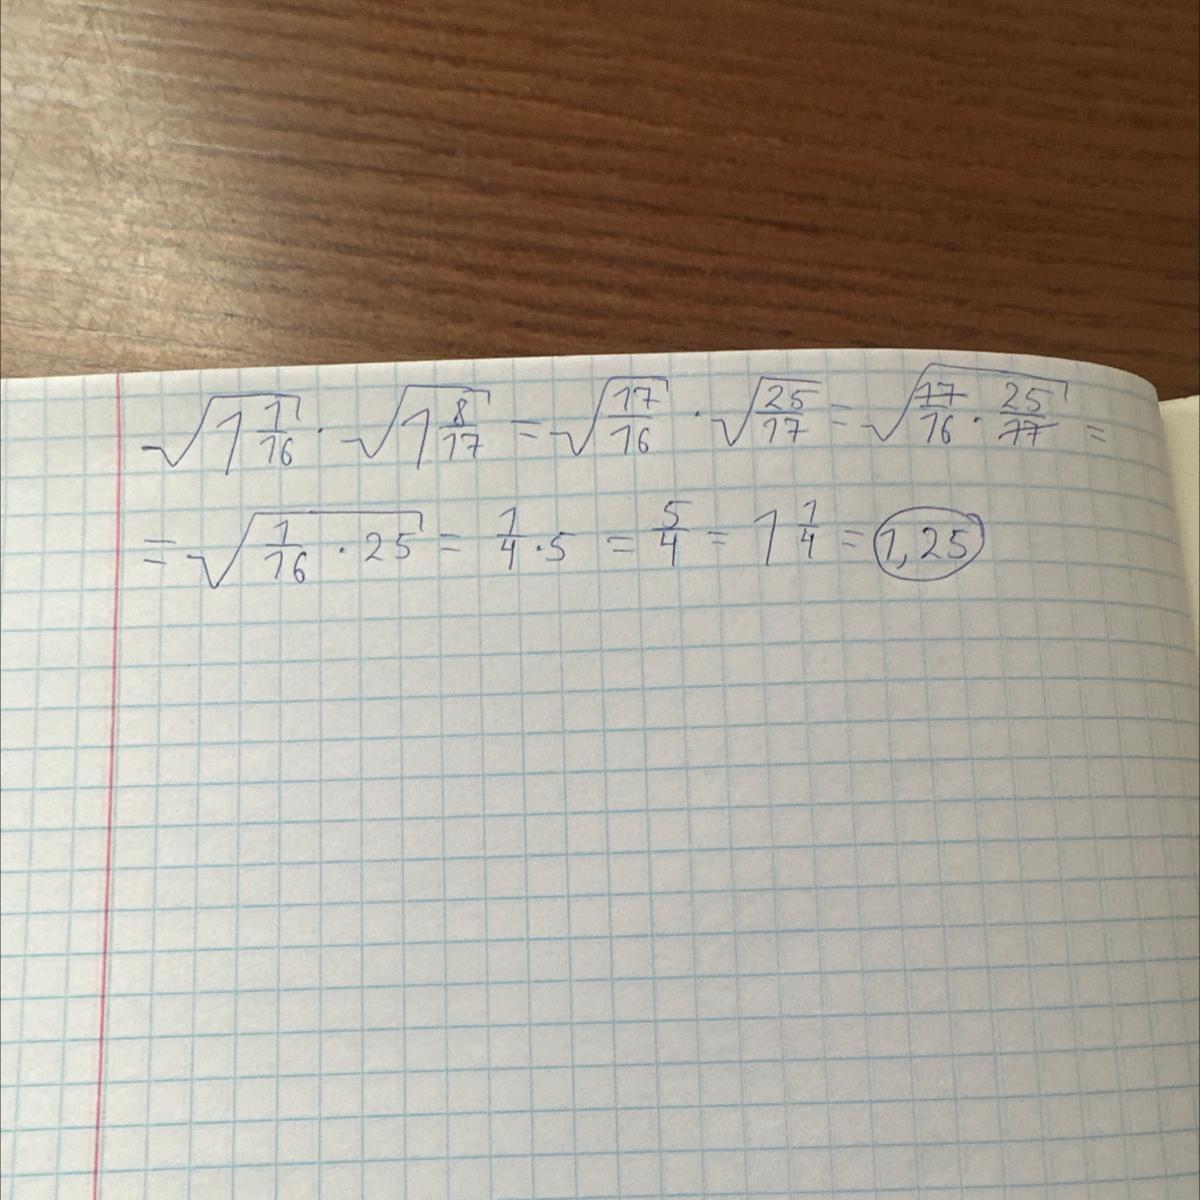 √(1 1/16) · √(1 8/17) = √(17/16) · √(25/17) = √(17/16 · 25/17) =
= √(1/16 · 25) = 1/4 · 5 = 5/4 = 1 1/4 = 1,25